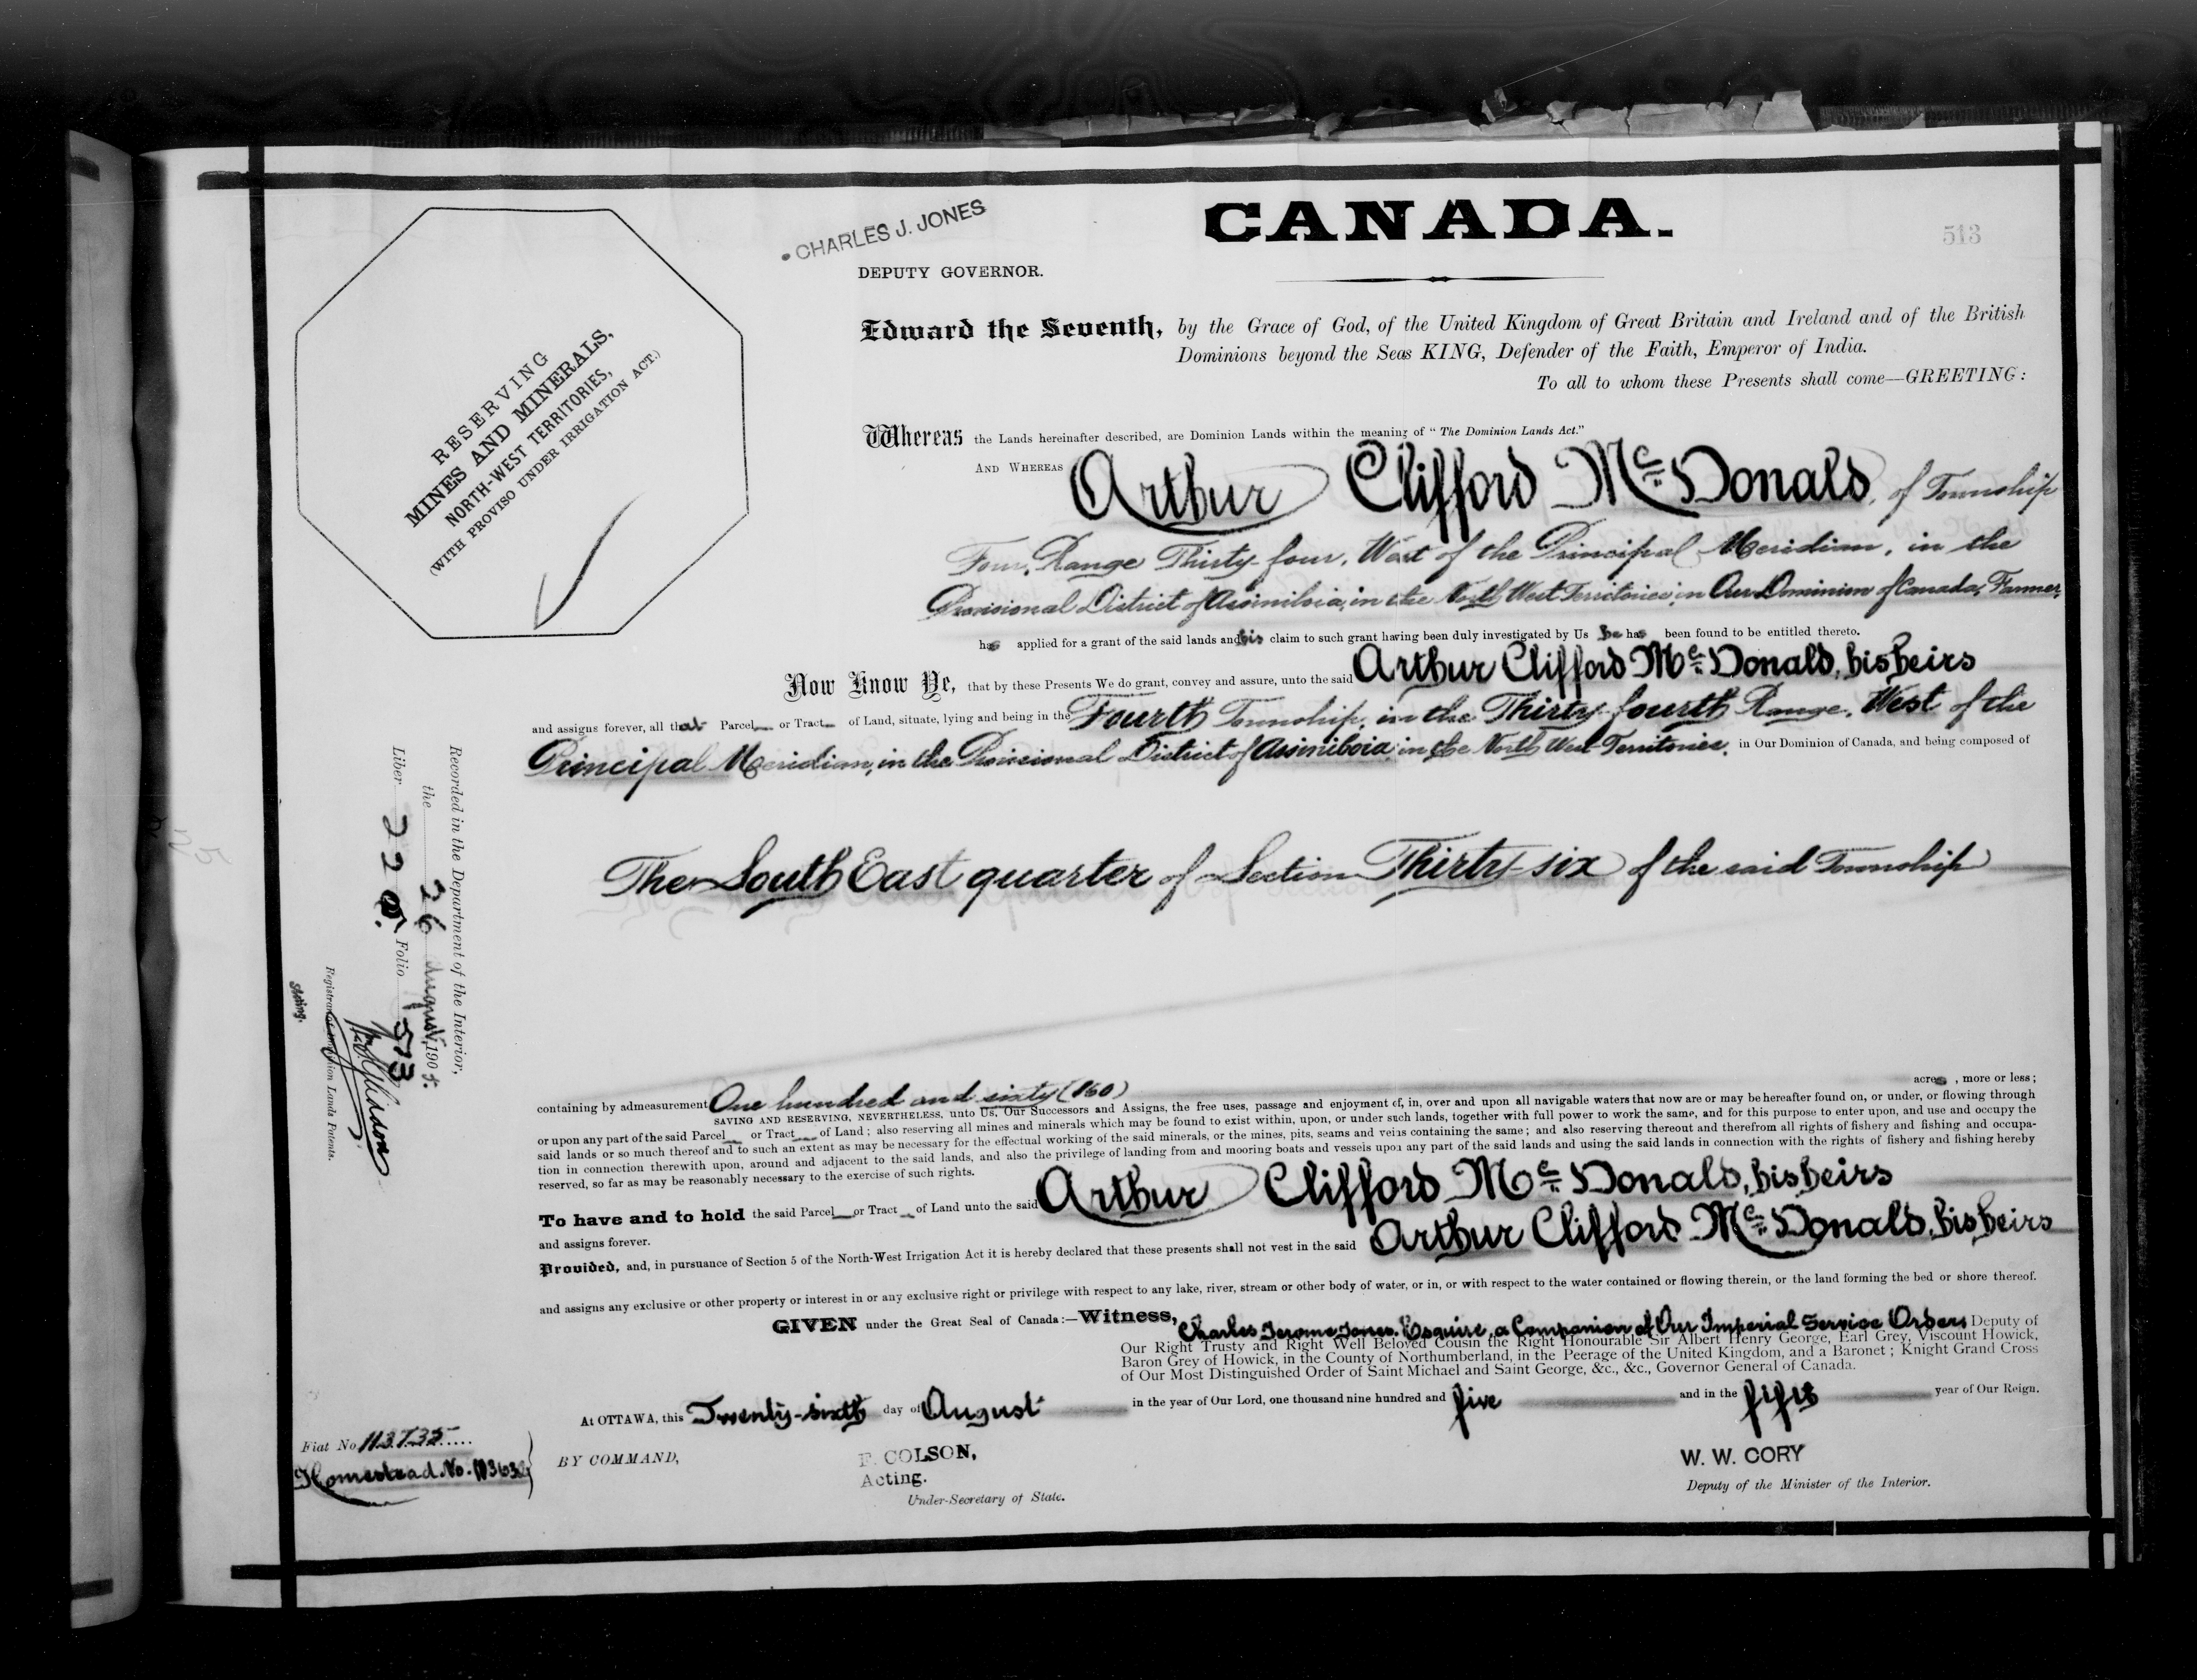 CANADA.
513
CHARLES J. JONES
DEPUTY GOVERNOR.
RESERVING
MINES AND MINERALS,
NORTH-WEST TERRITORIES,
(WITH PROVISO UNDER IRRIGATION ACT.)
Edward the Seventh, by the Grace of God, of the United Kingdom of Great Britain and Ireland and of the British
Dominions beyond the Seas KING, Defender of the Faith, Emperor of India.
To all to whom these Presents shall come—GREETING:
Whereas the Lands hereinafter described, are Dominion Lands within the meaning of "The Dominion Lands Act."
AND WHEREAS Arthur Clifford McDonald, of Township
Four, Range Thirty-four, West of the Principal Meridian, in the
Provisional District of Assiniboia, in the North West Territories, in Our Dominion of Canada, Farmer,
has applied for a grant of the said lands and his claim to such grant having been duly investigated by Us he has been found to be entitled thereto.
Now Know Ye, that by these Presents We do grant, convey and assure, unto the said Arthur Clifford McDonald, his heirs
and assigns forever, all that Parcel or Tract of Land, situate, lying and being in the Fourth Township, in the Thirty-fourth Range, West of the
Principal Meridian, in the Provisional District of Assiniboia, in the North West Territories, in Our Dominion of Canada, and being composed of
The South East quarter of Section Thirty-six of the said Township
containing by admeasurement One hundred and sixty (160) acres, more or less;
SAVING AND RESERVING, NEVERTHELESS, unto Us, Our Successors and Assigns, the free uses, passage and enjoyment of, in, over and upon all navigable waters that now are or may be hereafter found on, or under, or flowing through
or upon any part of the said Parcel or Tract of Land; also reserving all mines and minerals which may be found to exist within, upon, or under such lands, together with full power to work the same, and for this purpose to enter upon, and use and occupy the
said lands or so much thereof and to such an extent as may be necessary for the effectual working of the said minerals, or the mines, pits, seams and veins containing the same; and also reserving thereout and therefrom all rights of fishery and fishing and occupa-
tion in connection therewith upon, around and adjacent to the said lands, and also the privilege of landing from and mooring boats and vessels upon any part of the said lands and using the said lands in connection with the rights of fishery and fishing hereby
reserved, so far as may be reasonably necessary to the exercise of such rights.
To have and to hold the said Parcel or Tract of Land unto the said Arthur Clifford McDonald, his heirs
and assigns forever.
Provided, and, in pursuance of Section 5 of the North-West Irrigation Act it is hereby declared that these presents shall not vest in the said Arthur Clifford McDonald, his heirs
and assigns any exclusive or other property or interest in or any exclusive right or privilege with respect to any lake, river, stream or other body of water, or in, or with respect to the water contained or flowing therein, or the land forming the bed or shore thereof.
GIVEN under the Great Seal of Canada:—Witness, Charles Jerome Jones, Esquire, a Companion of Our Imperial Service Order, Deputy of
Our Right Trusty and Right Well Beloved Cousin the Right Honourable Sir Albert Henry George, Earl Grey, Viscount Howick,
Baron Grey of Howick, in the County of Northumberland, in the Peerage of the United Kingdom, and a Baronet; Knight Grand Cross
of Our Most Distinguished Order of Saint Michael and Saint George, &c., &c., Governor General of Canada.
At OTTAWA, this Twenty-sixth day of August in the year of Our Lord, one thousand nine hundred and five and in the fifth year of Our Reign.
BY COMMAND,
F. COLSON,
Acting.
Under-Secretary of State.
W. W. CORY
Deputy of the Minister of the Interior.
Fiat No
Homestead No.
Recorded in the Department of the Interior,
the 26 August, 1905.
Liber 220. Folio 513
Registrar of Dominion Lands Patents.
Acting.